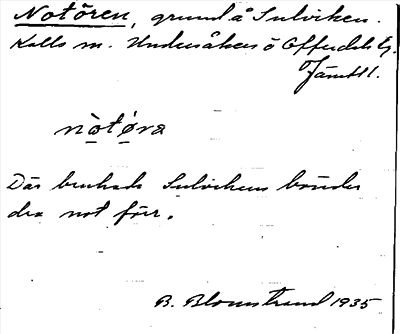 Notören, grund å Sulviken.
Kalls m. Undersåkers o Offerdals tg.
Jämtl.
nòtø̀ra
Där brukade Sulvikens bönder
dra not förr.
B. Blomstrand 1935